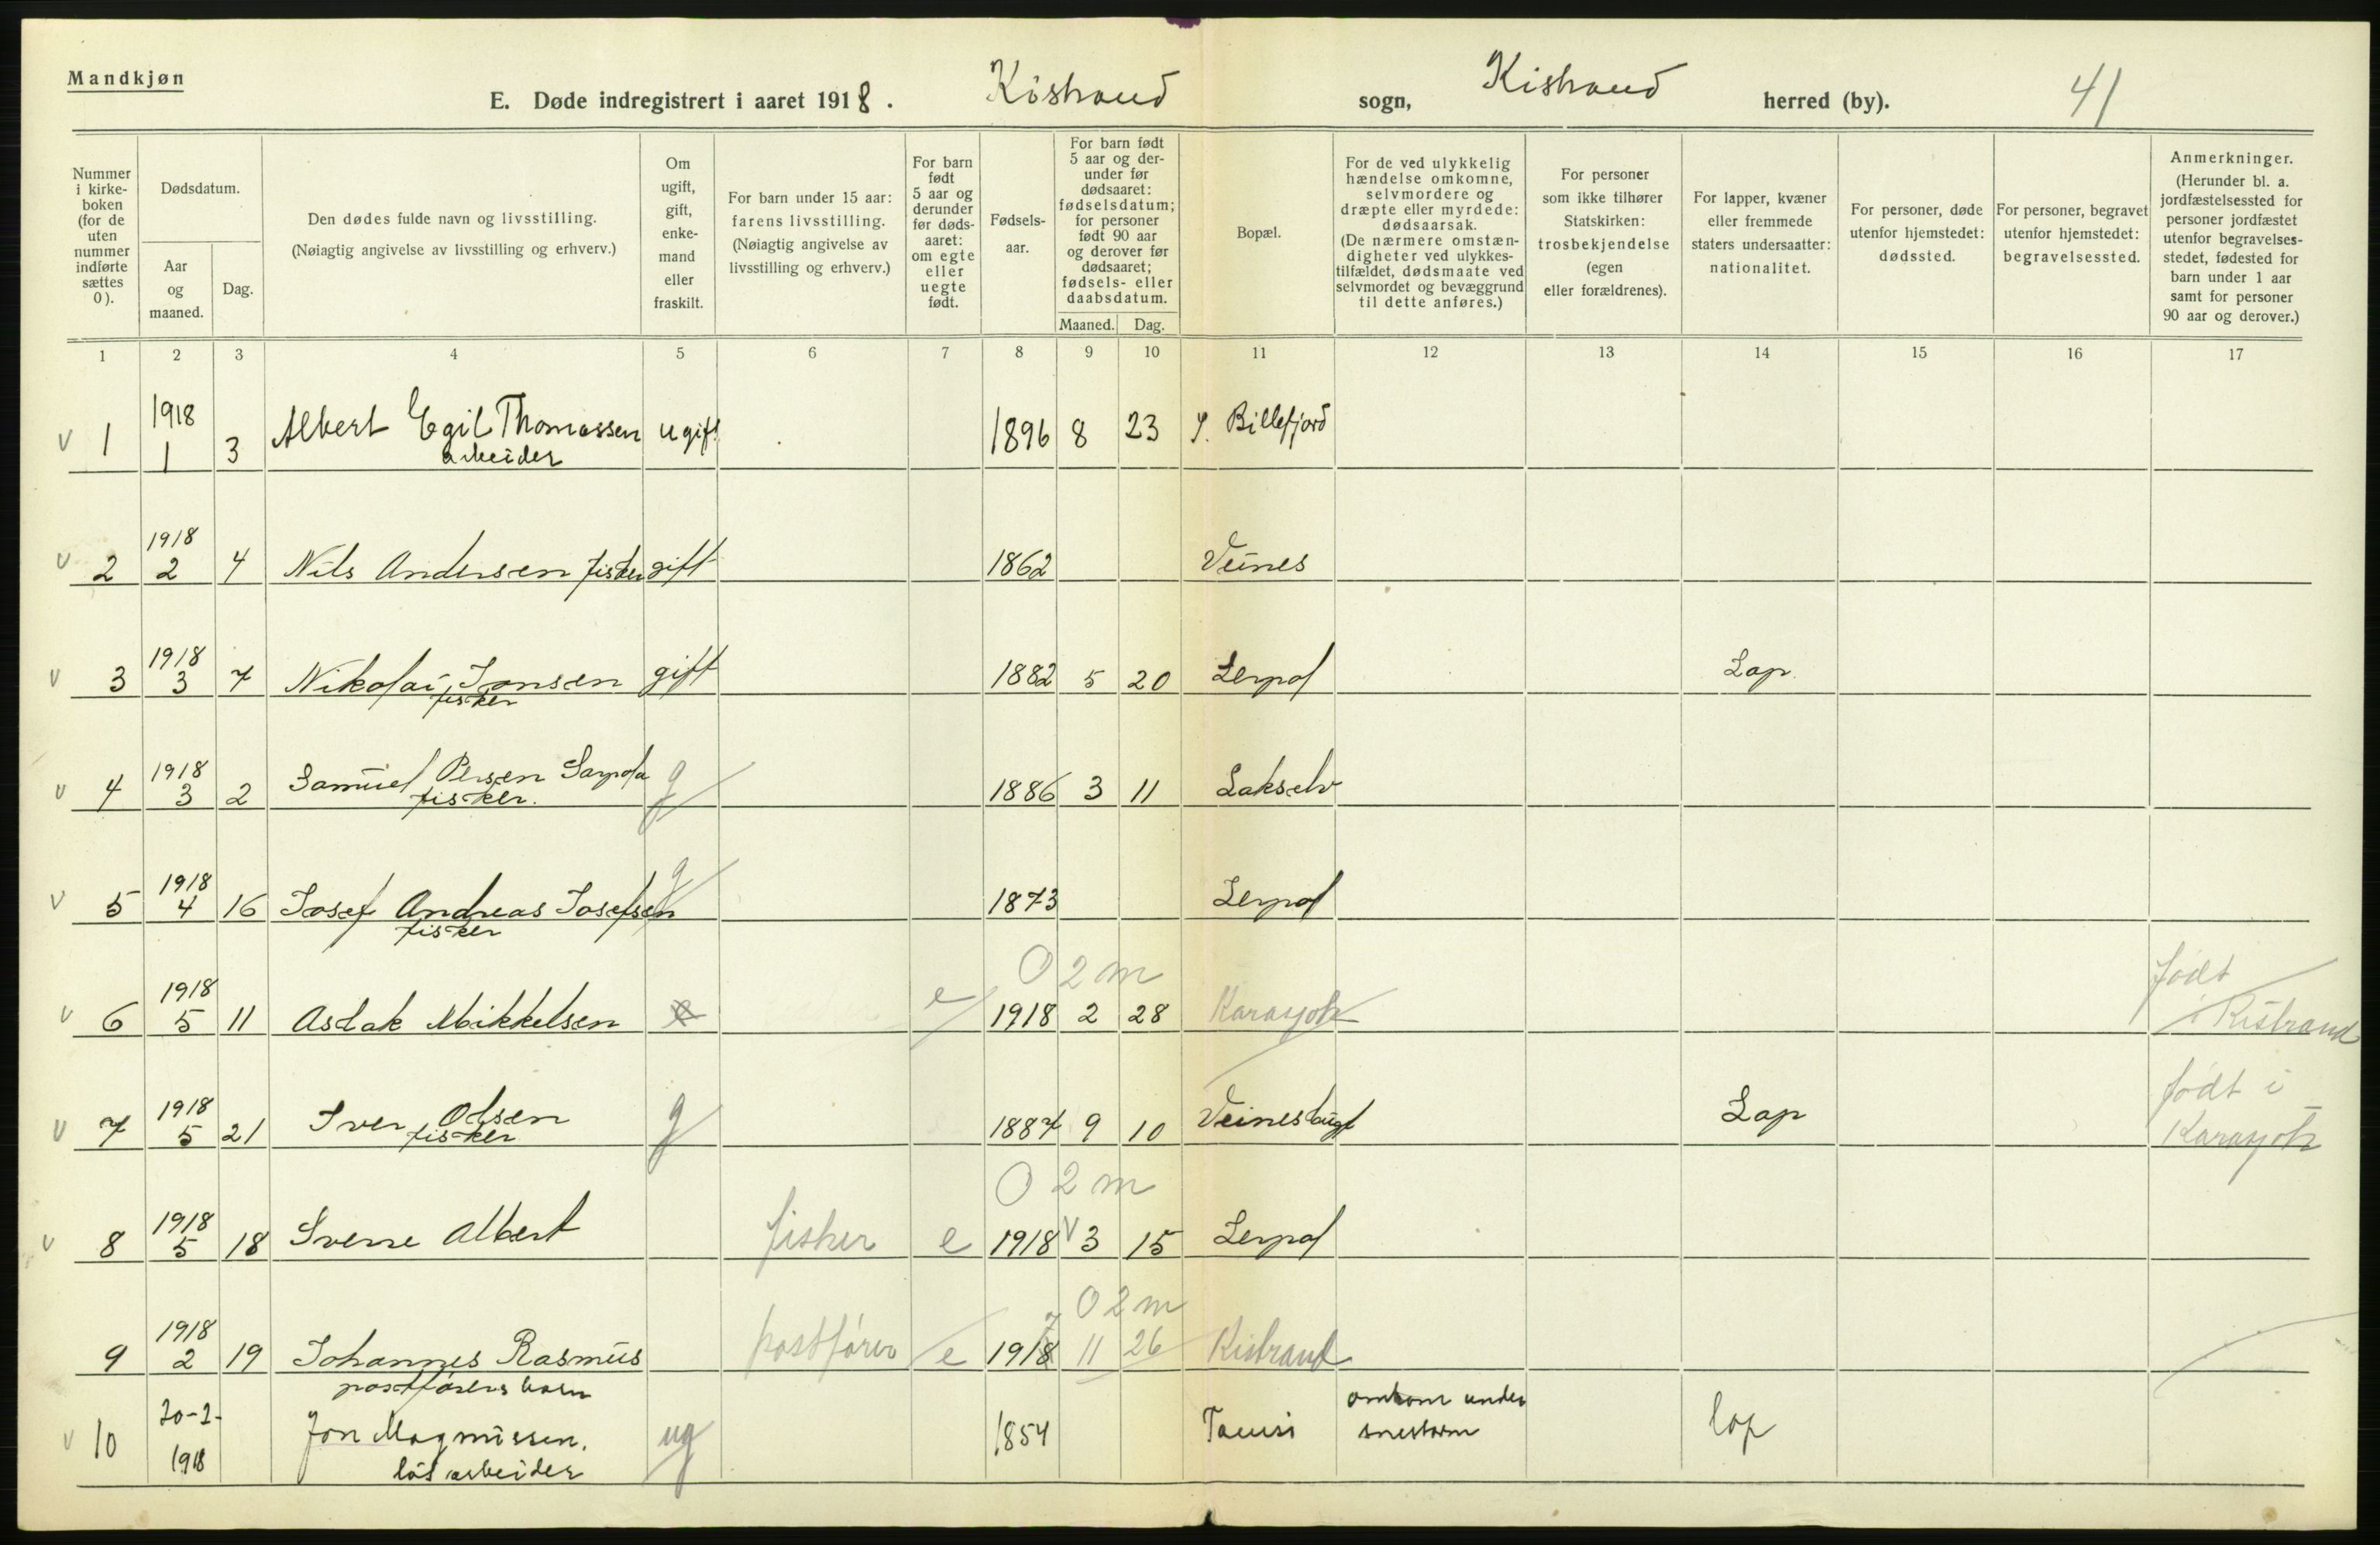 Mandkjøn
E. Døde indregistrert i aaret 1918. Kistrand sogn, Kistrand herred (by). 41
Nummer i kirke-boken (for de uten nummer indførte sættes 0).
Dødsdatum.
Aar og maaned.
Dag.
Den dødes fulde navn og livsstilling.
(Nøiagtig angivelse av livsstilling og erhverv.)
Om ugift, gift, enke-mand eller fraskilt.
For barn under 15 aar: farens livsstilling.
(Nøiagtig angivelse av livsstilling og erhverv.)
For barn født 5 aar og derunder før døds-aaret: om egte eller uegte født.
Fødsels-aar.
For barn født 5 aar og der-under før dødsaaret: fødselsdatum; for personer født 90 aar og derover før dødsaaret; fødsels- eller daabsdatum.
Maaned. Dag.
Bopæl.
For de ved ulykkelig hændelse omkomne, selvmordere og dræpte eller myrdede: dødsaarsak.
(De nærmere omstæn-digheter ved ulykkes-tilfældet, dødsmaate ved selvmordet og bevæggrund til dette anføres.)
For personer som ikke tilhører Statskirken: trosbekjendelse (egen eller forældrenes).
For lapper, kvæner eller fremmede staters undersaatter: nationalitet.
For personer, døde utenfor hjemstedet: dødssted.
For personer, begravet utenfor hjemstedet: begravelsessted.
Anmerkninger.
(Herunder bl. a. jordfæstelsessted for personer jordfæstet utenfor begravelses-stedet, fødested for barn under 1 aar samt for personer 90 aar og derover.)
1 2 3 4 5 6 7 8 9 10 11 12 13 14 15 16 17
v 1 1918 1 3 Albert Egil Thomassen ugift 1896 8 23 Y. Billefjord
arbeider
v 2 1918 2 4 Nils Andersen fisker gift 1862 Veines
v 3 1918 3 7 Nikolai Jonsen gift 1882 5 20 Lerpol Lap.
fisker
v 4 1918 3 2 Samuel Persen Sarpola g 1886 3 11 Lakselv
fisker.
v 5 1918 4 16 Josef Andreas Josefsen g 1873 Lerpol
fisker
0 2 m
v 6 1918 5 11 Aslak Mikkelsen e 1918 2 28 Karasjok født i Kistrand
v 7 1918 5 21 Iver Olsen g 1887 9 10 Veinesbugt Lap født i Karasjok
fisker
0 2 m
v 8 1918 5 18 Sverre Albert fisker e 1918 v 3 15 Lerpol
0 2 m
9 1918 2 19 Johannes Rasmus postfører e 1918 7 11 26 Kistrand
postførers barn
v 10 20-2- 1918 Jon Magnussen. ug 1854 omkom under snestorm lap
løsarbeider